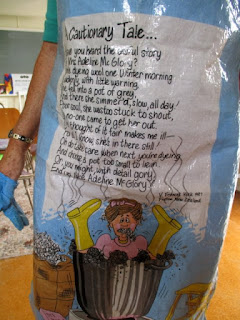 Cautionary Tale...
you heard the awful story
Mrs Adeline Mc Glory?
dyeing wool one Winter morning
with little warning
fell into a pot of grey
there she simmered, slow, all day!
soul, she was too stuck to shout,
no-one came to get her out.
thought of it fair makes me ill-
know, she's in there still!
Oh do take care when next you're dyeing
a pot too small to lie in
Or you might, with detail gory
End up like Adeline Mc Glory